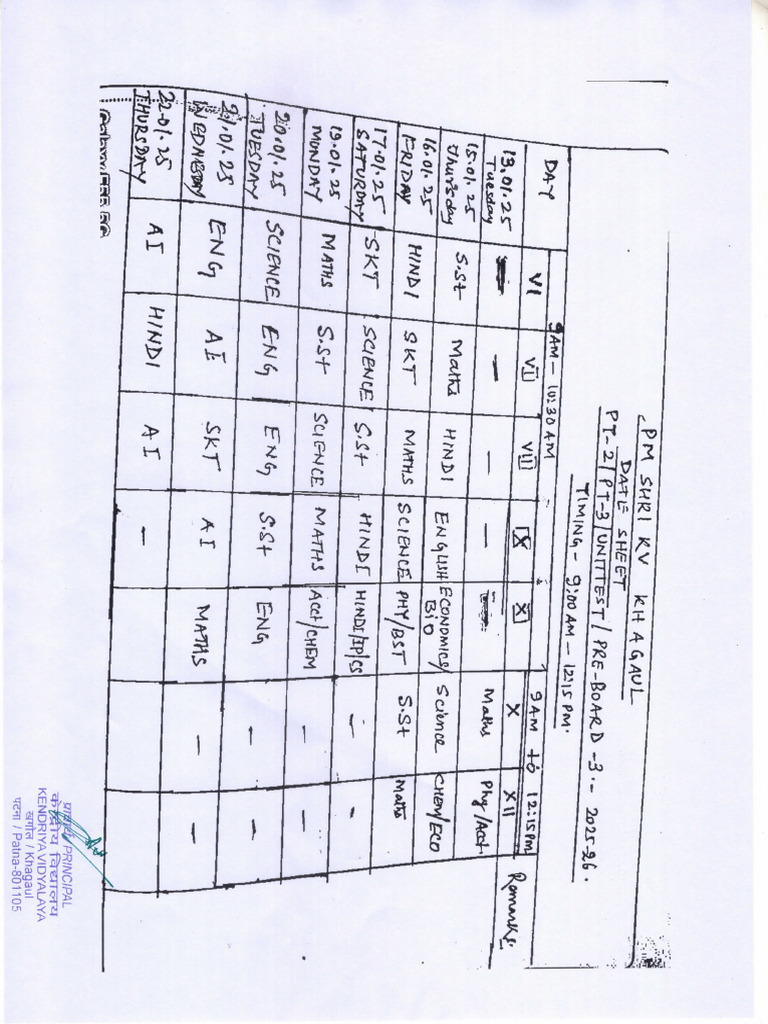 PM SHRI KV KHAGAUL
DATE SHEET
PT-2/PT-3/UNITTEST/PRE-BOARD-3 - 2025-26.
TIMING - 9:00AM - 12:15PM.
9AM - 10:30AM 9AM to 12:15PM
DAY VI VII VIII IX XI X XII Remarks
13.01.25 Tuesday — — — Maths Phy/Acct.
15.01.25 Thursday S.St Maths HINDI ENGLISH ECONOMICS/Bio Science CHEM/ECO
16.01.25 FRIDAY HINDI SKT MATHS SCIENCE PHY/BST S.St Maths
17.01.25 SATURDAY SKT SCIENCE S.St HINDI HINDI/IP/CS — —
19.01.25 MUNDAY MATHS S.St SCIENCE MATHS Acct/CHEM — —
20.01.25 TUESDAY SCIENCE ENG ENG S.St ENG — —
21.01.25 WEDNESDAY ENG AI SKT AI MATHS — —
22.01.25 THURSDAY AI HINDI AI —
प्राचार्य/PRINCIPAL
केन्द्रीय विद्यालय
KENDRIYA VIDYALAYA
खगौल / Khagaul
पटना / Patna-801105